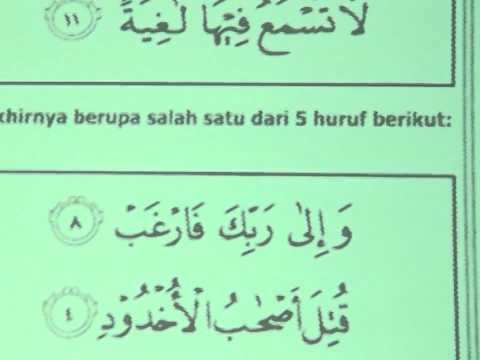 لَا تَسْمَعُ فِيْهَا لَاغِيَةً ١١
khirnya berupa salah satu dari 5 huruf berikut:
وَإِلىٰ رَبِّكَ فَارْغَبْ ٨
قُتِلَ أَصْحٰبُ الْأُخْدُوْدِ ٤